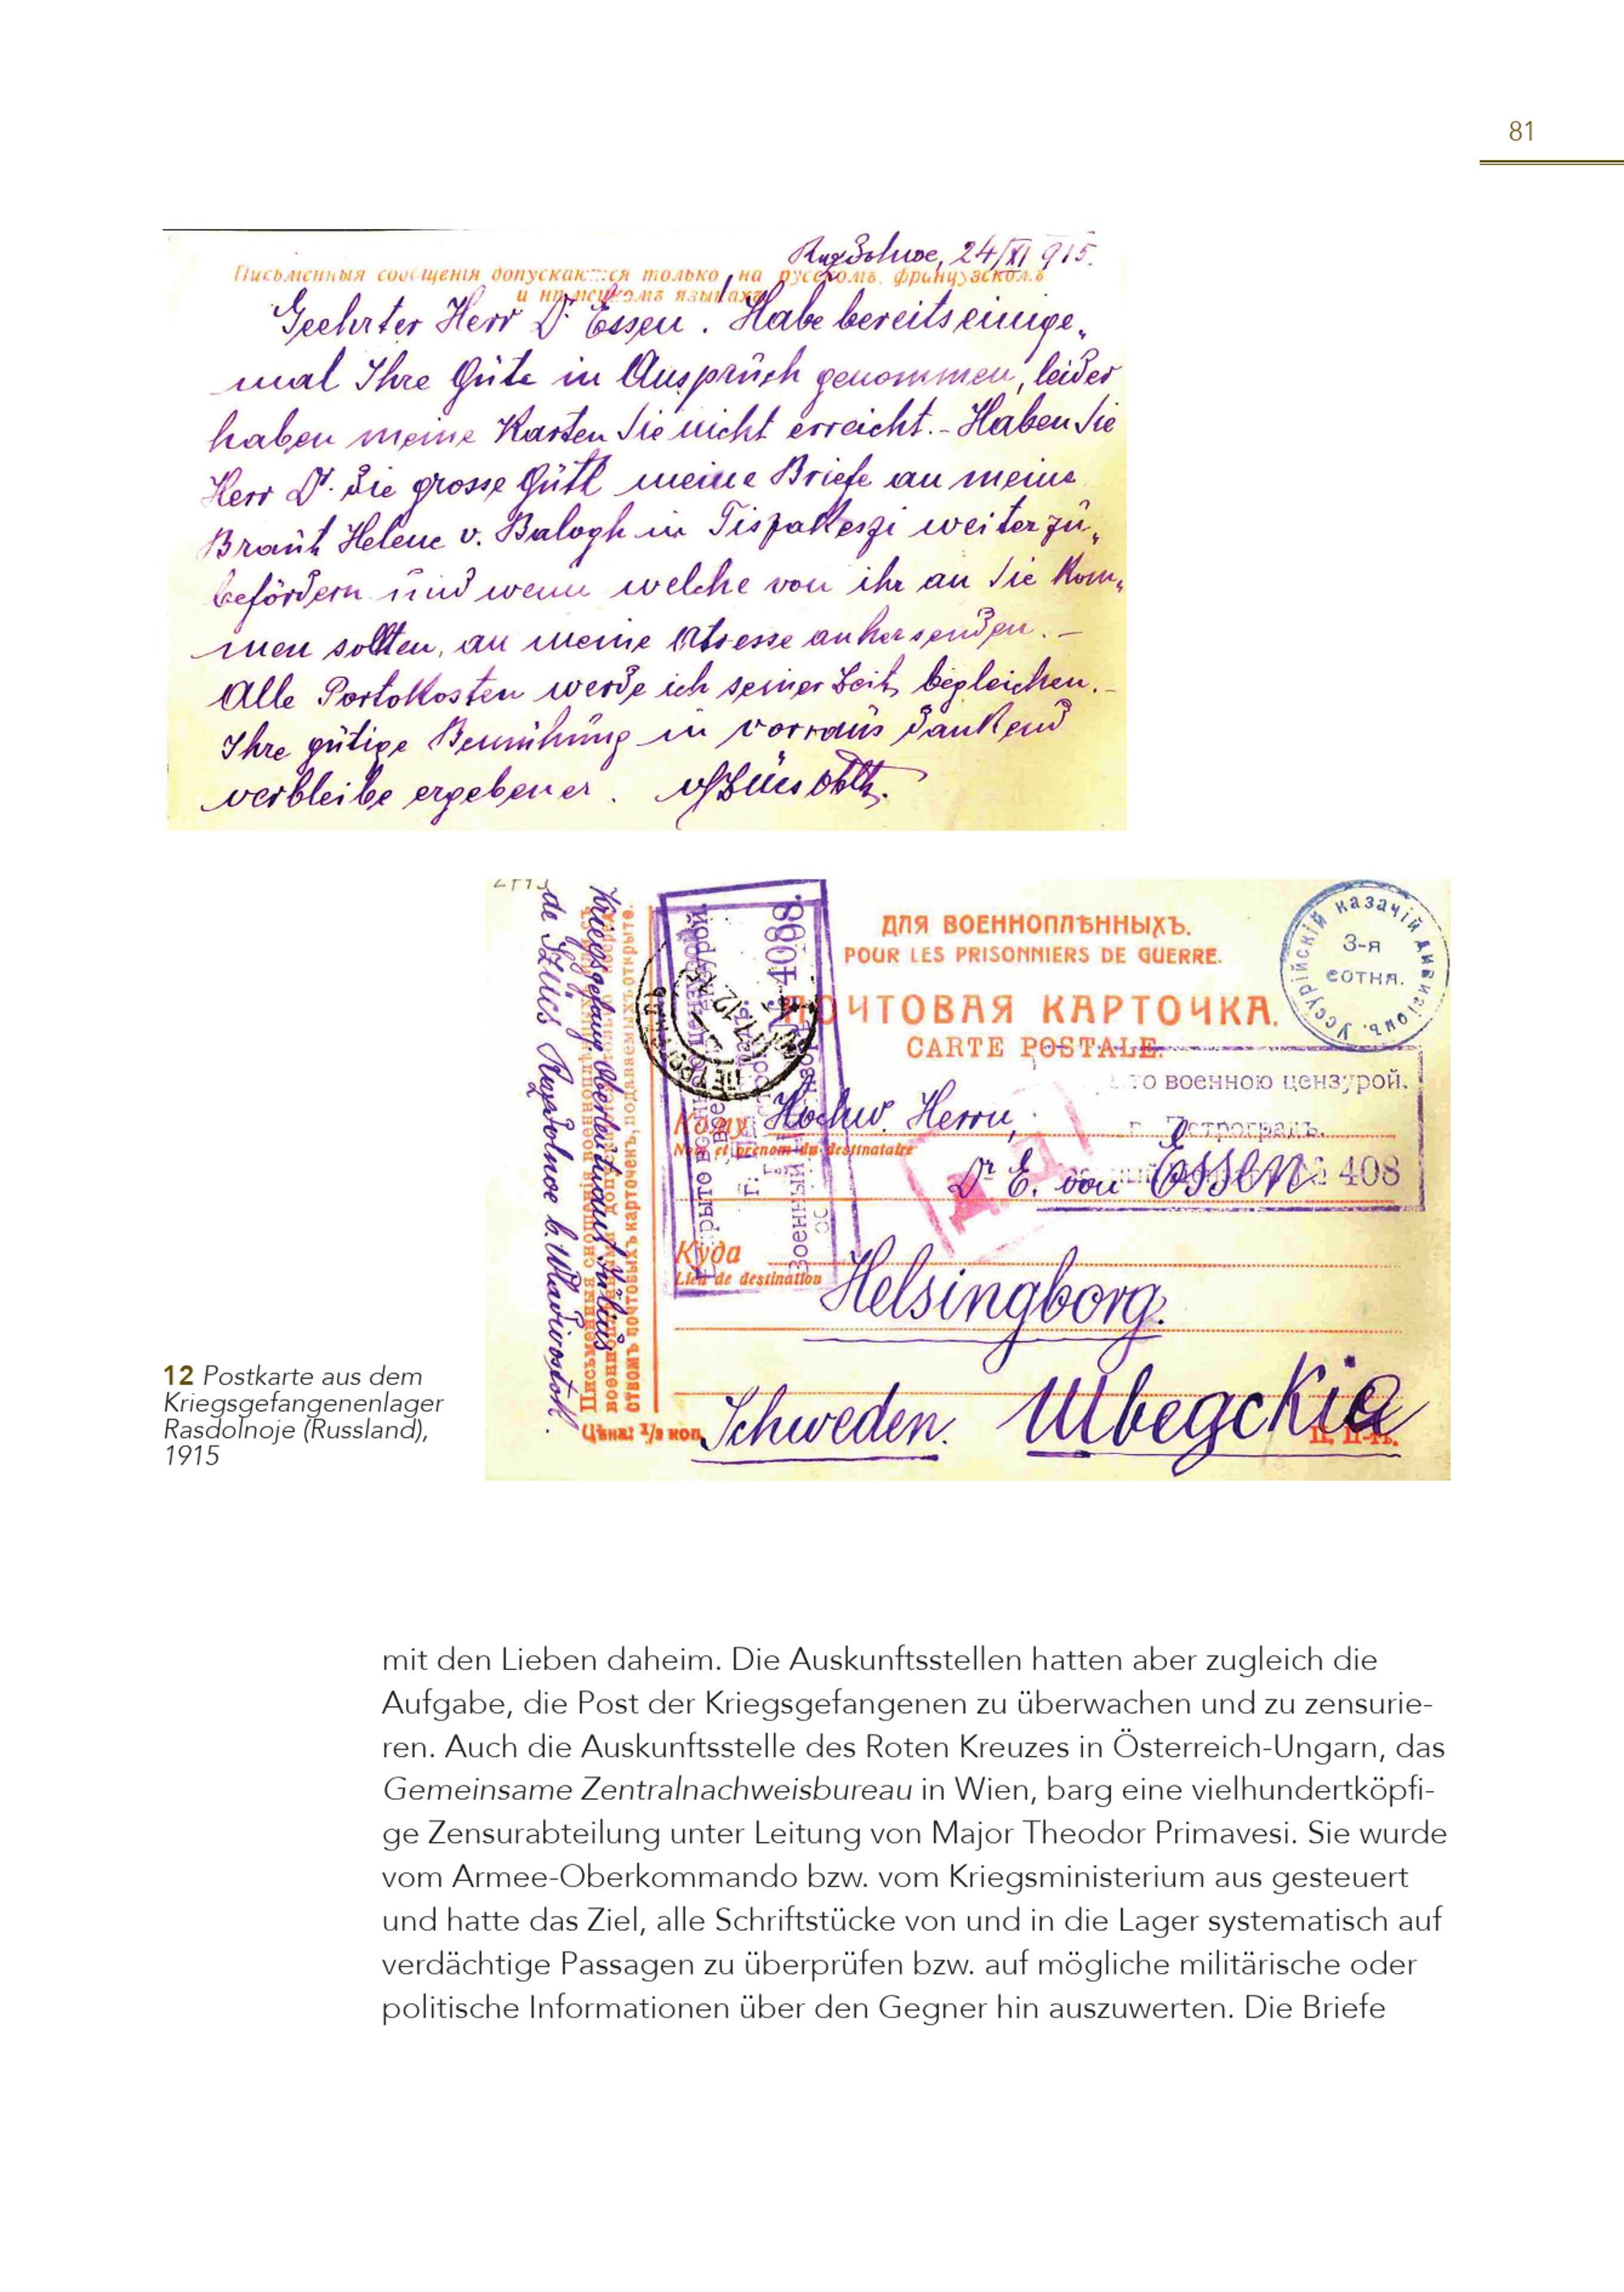 81
Razdolnoe, 24/XI 915.
Письменныя сообщенія допускаются только на русскомъ, французскомъ
и нѣмецкомъ языкахъ
Geehrter Herr Dr. Essen! Habe bereits einige„
mal Ihre Güte in Anspruch genommen, leider
haben meine Karten Sie nicht erreicht. - Haben Sie
Herr Dr. die grosse Güte meine Briefe an meine
Braut Helene v. Balogh in weiter zu„
befördern und wenn welche von ihr an Sie kom„
men sollten, an meine Adresse anher senden. -
Alle Portokosten werde ich seiner Zeit begleichen. -
Ihre gütige Bemühung in vorraus dankend
verbleibe ergebener.
de Szücs Razdolnoe b. Wladiwostok.
Kriegsgefang. Oberleutnant
Письменныя сношенія военноплѣнныхъ
военно допуска
ствомъ почтовыхъ карточекъ, подаваемыхъ открыто.
Цѣна: 1/2 коп.
4088.
ДЛЯ ВОЕННОПЛѢННЫХЪ.
POUR LES PRISONNIERS DE GUERRE.
ПОЧТОВАЯ КАРТОЧКА.
CARTE POSTALE.
Уссурійскій казачій дивизіонъ.
3-я
сотня.
военною цензурой.
г. Петроградъ.
408
Кому
Nom et prénom du destinataire
Hochw. Herrn,
Dr E. von Essen
Куда
Lieu de destination
Helsingborg.
Schweden. Швегскіа
12 Postkarte aus dem
Kriegsgefangenenlager
Rasdolnoje (Russland),
1915
mit den Lieben daheim. Die Auskunftsstellen hatten aber zugleich die
Aufgabe, die Post der Kriegsgefangenen zu überwachen und zu zensurie-
ren. Auch die Auskunftsstelle des Roten Kreuzes in Österreich-Ungarn, das
Gemeinsame Zentralnachweisbureau in Wien, barg eine vielhundertköpfi-
ge Zensurabteilung unter Leitung von Major Theodor Primavesi. Sie wurde
vom Armee-Oberkommando bzw. vom Kriegsministerium aus gesteuert
und hatte das Ziel, alle Schriftstücke von und in die Lager systematisch auf
verdächtige Passagen zu überprüfen bzw. auf mögliche militärische oder
politische Informationen über den Gegner hin auszuwerten. Die Briefe